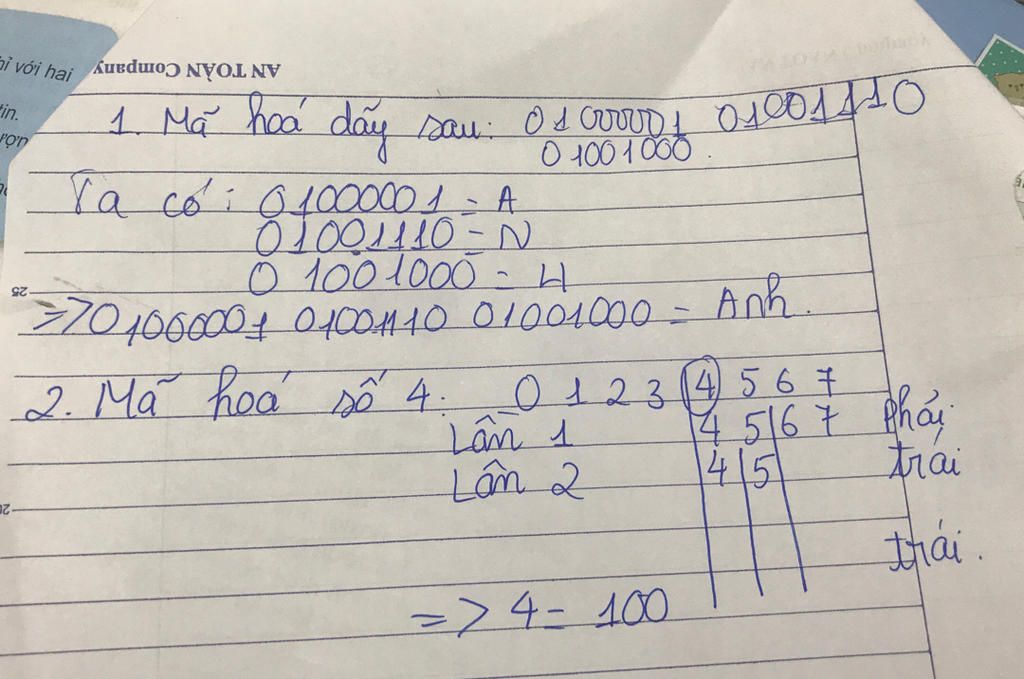 ỉ với hai
tin.
ượn
AN TOÀN Company
1. Mã hoá dãy sau: 01000001 01001110
01001000.
Ta có: 01000001 = A
01001110 = N
01001000 = H
25
=> 01000001 01001110 01001000 = Anh.
2. Mã hoá số 4: 0 1 2 3 4 5 6 7
Lần 1 4 5 6 7 phải
Lần 2 4 5 trái
trái.
=> 4 = 100